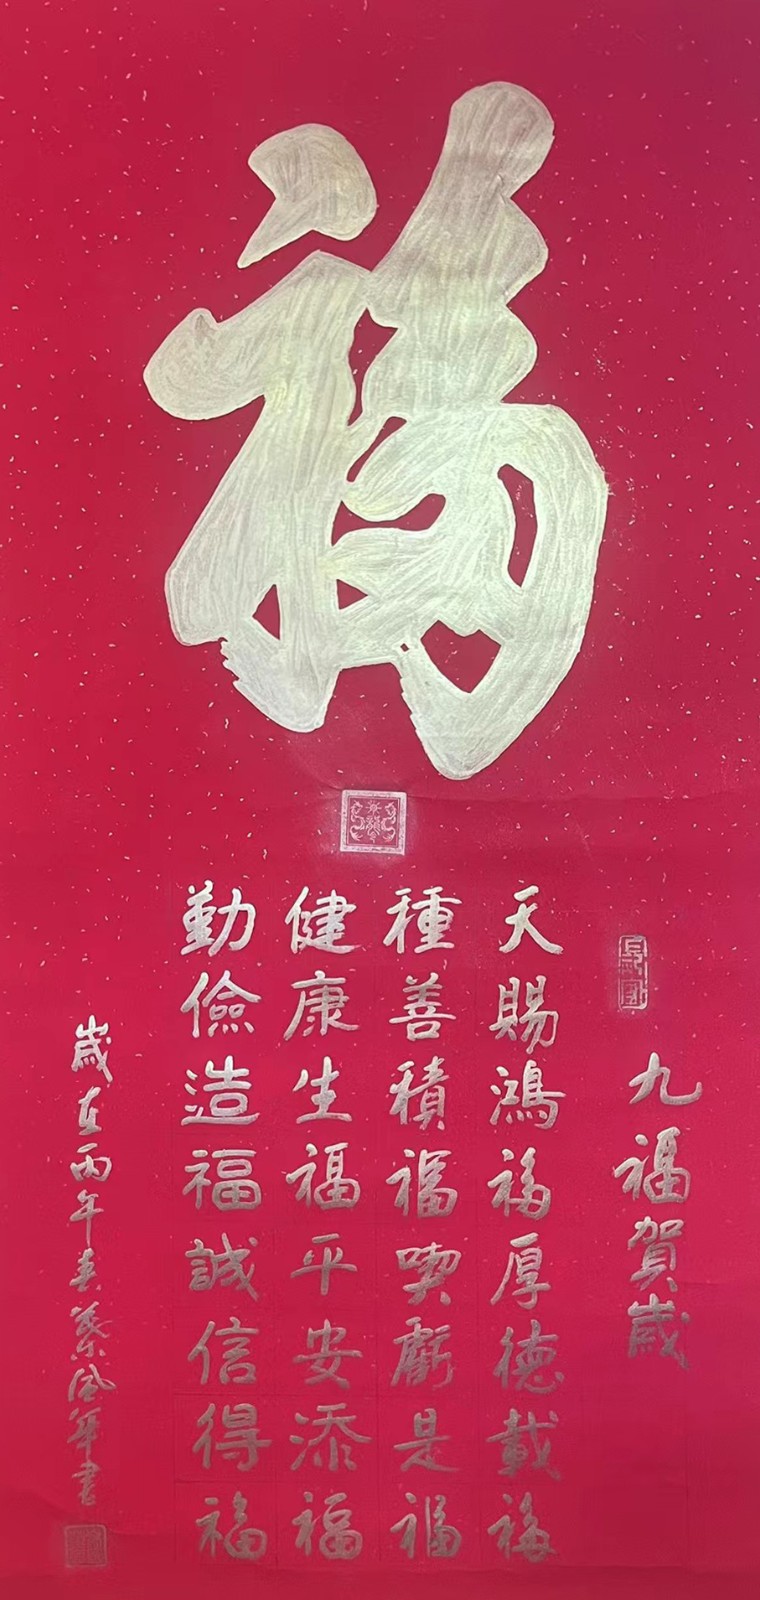 福
九福賀歲
天賜鴻福厚德載福
種善積福喫虧是福
健康生福平安添福
勤儉造福誠信得福
歲在丙午春蔡風華書